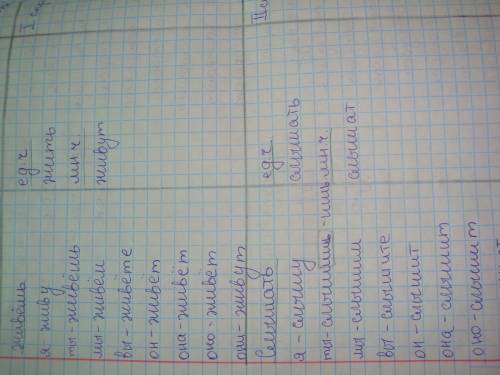 I спр
живёшь
я - живу
ты - живёшь
мы - живём
вы - живёте
он - живёт
она - живёт
оно - живёт
они - живут
ед.ч
жить
мн.ч.
живут
II
Слышать
я - слышу
ты - слышишь - ишь
мы - слышим
вы - слышите
он - слышит
она - слышит
оно - слышит
ед.ч
слышать
мн.ч
слышат